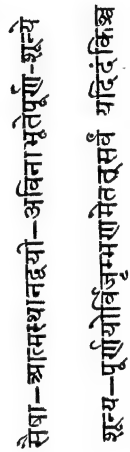 सैषा—आत्मस्थानद्वयी—अविनाभूतेपूर्ण-शून्ये
शून्य—पूर्णयोर्विजृम्भणमेतत्सर्वं यदिदंकिञ्च